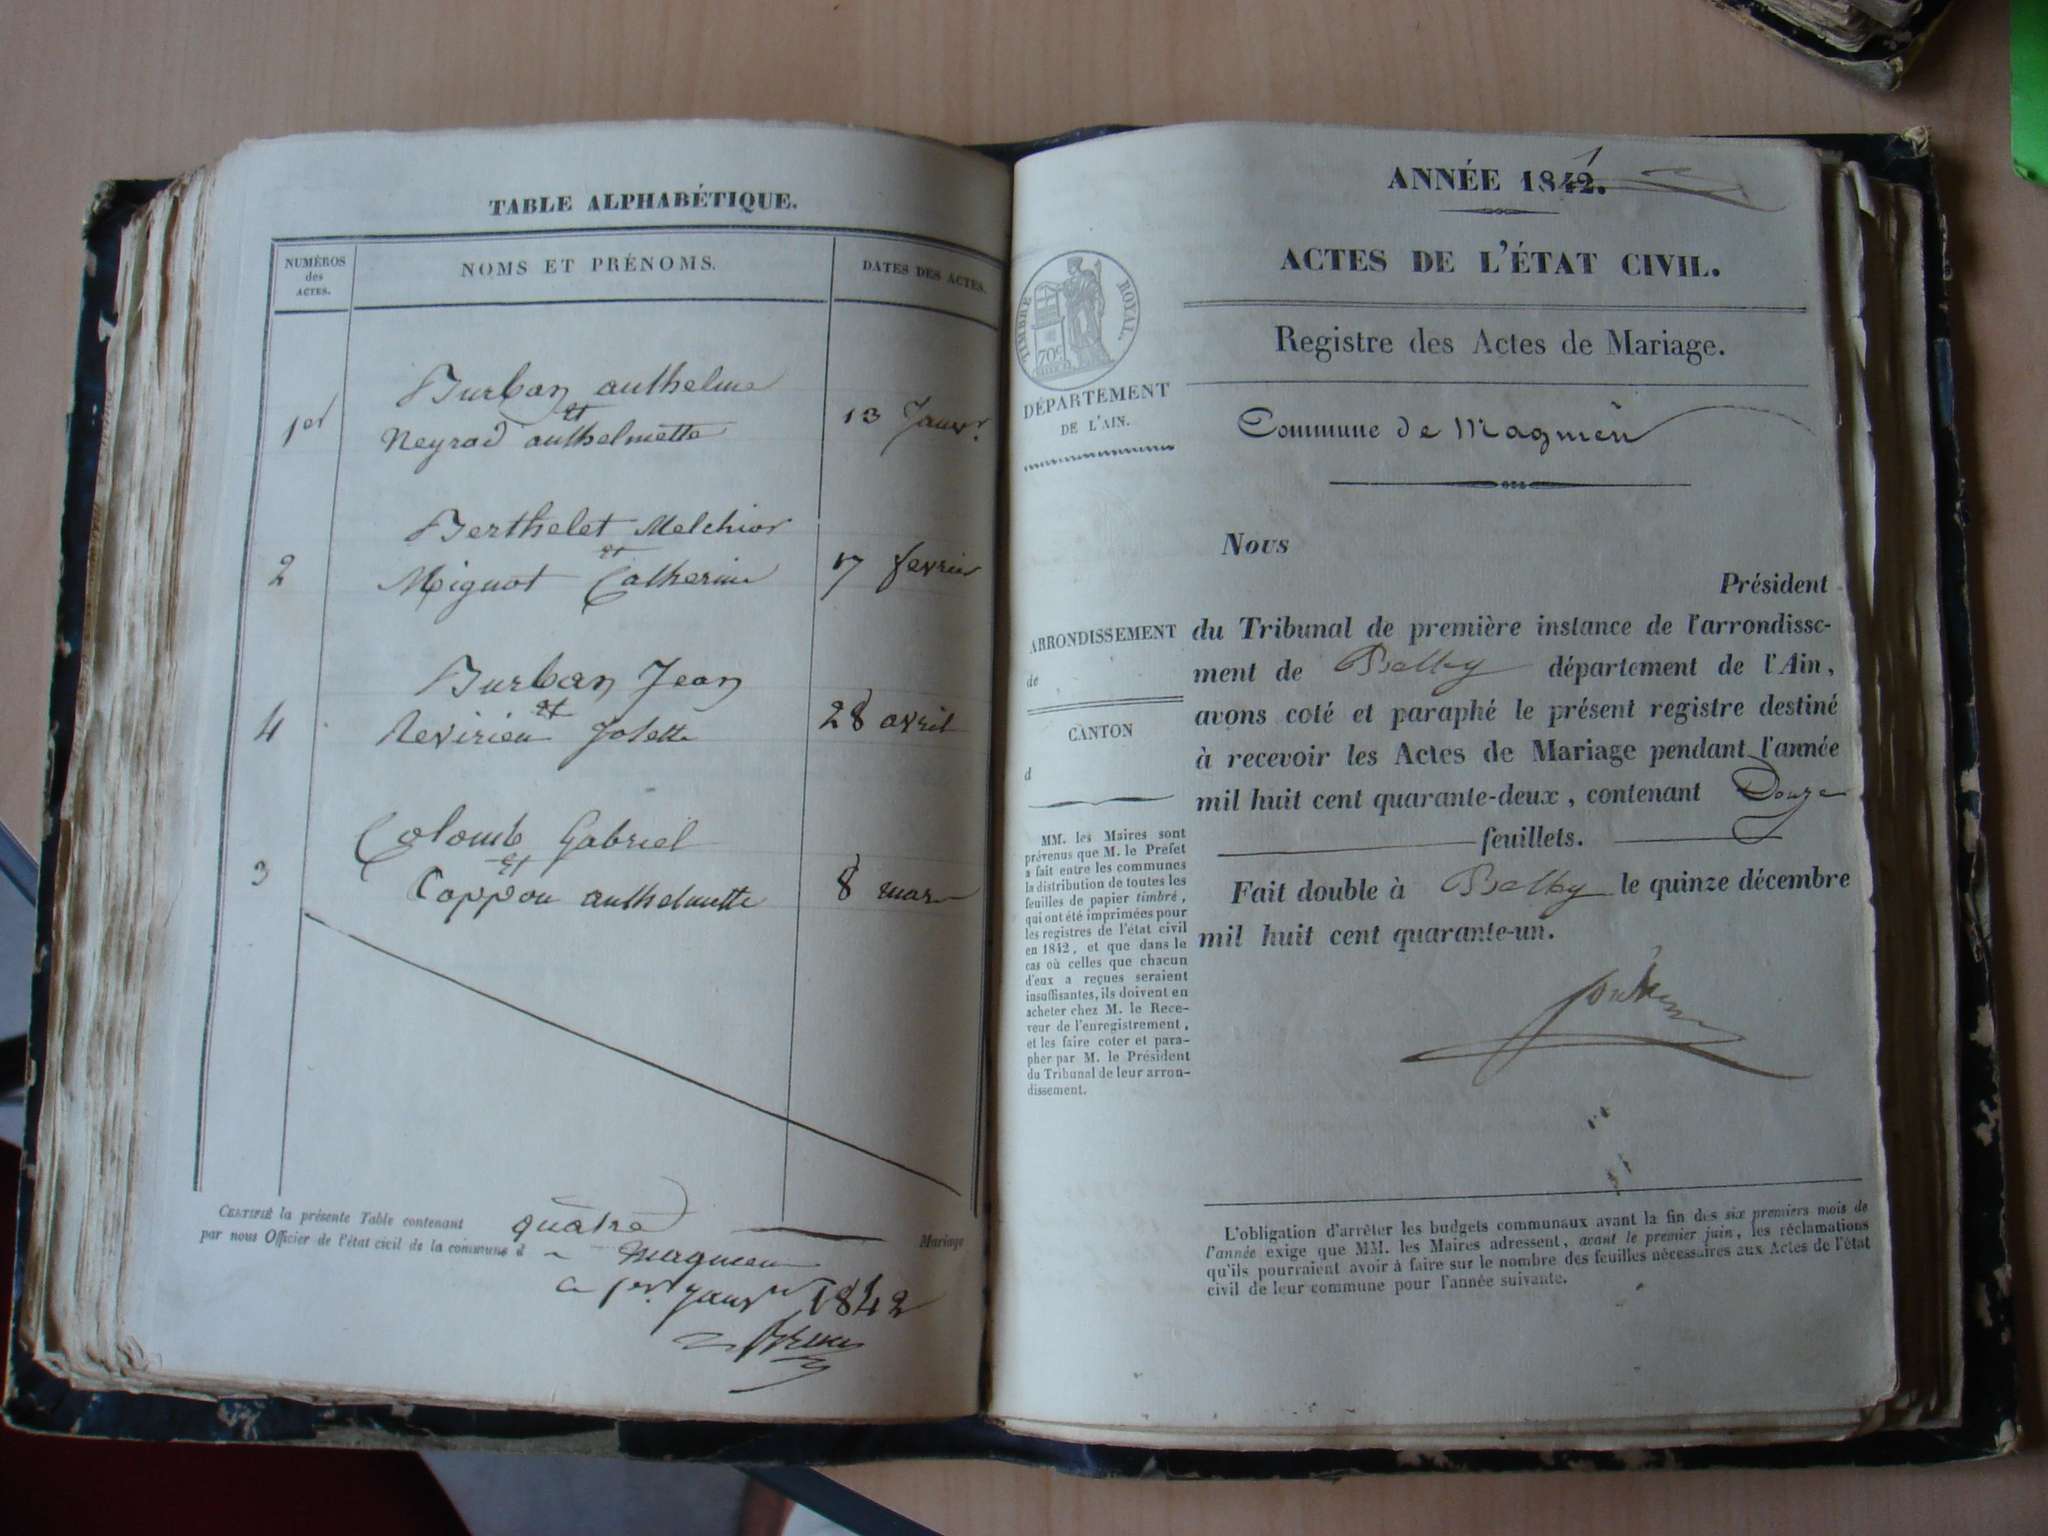 TABLE ALPHABÉTIQUE.
NUMÉROS
des
ACTES.
NOMS ET PRÉNOMS.
DATES DES ACTES.
Burban anthelme
et
1er
Neyrod anthelmette
13 Janvr.
Berthelet Melchior
et
2
Mignot Catherine
17 fevrier
Burban Jean
et
4
Revirieu Josette
28 avril
Colomb Gabriel
et
3
Coppon anthelmette
8 mars
CERTIFIÉ la présente Table contenant quatre Mariage
par nous Officier de l'état civil de la commune d magnieu
Ce 1er Janvr 1842
ANNÉE 1842.
ACTES DE L'ÉTAT CIVIL.
TIMBRE ROYAL
70c
Registre des Actes de Mariage.
DÉPARTEMENT
DE L'AIN.
Commune de Magnieu
Nous
Président
du Tribunal de première instance de l'arrondisse-
ment de Belley département de l'Ain,
avons coté et paraphé le présent registre destiné
à recevoir les Actes de Mariage pendant l'année
mil huit cent quarante-deux, contenant Douze
feuillets.
Fait double à Belley le quinze décembre
mil huit cent quarante-un.
ARRONDISSEMENT
de
CANTON
d
MM. les Maires sont
prévenus que M. le Prefet
a fait entre les communes
la distribution de toutes les
feuilles de papier timbré,
qui ont été imprimées pour
les registres de l'état civil
en 1842, et que dans le
cas où celles que chacun
d'eux a reçues seraient
insuffisantes, ils doivent en
acheter chez M. le Rece-
veur de l'enregistrement,
et les faire coter et para-
pher par M. le Président
du Tribunal de leur arron-
dissement.
L'obligation d'arrêter les budgets communaux avant la fin des six premiers mois de
l'année exige que MM. les Maires adressent, avant le premier juin, les réclamations
qu'ils pourraient avoir à faire sur le nombre des feuilles nécessaires aux Actes de l'état
civil de leur commune pour l'année suivante.